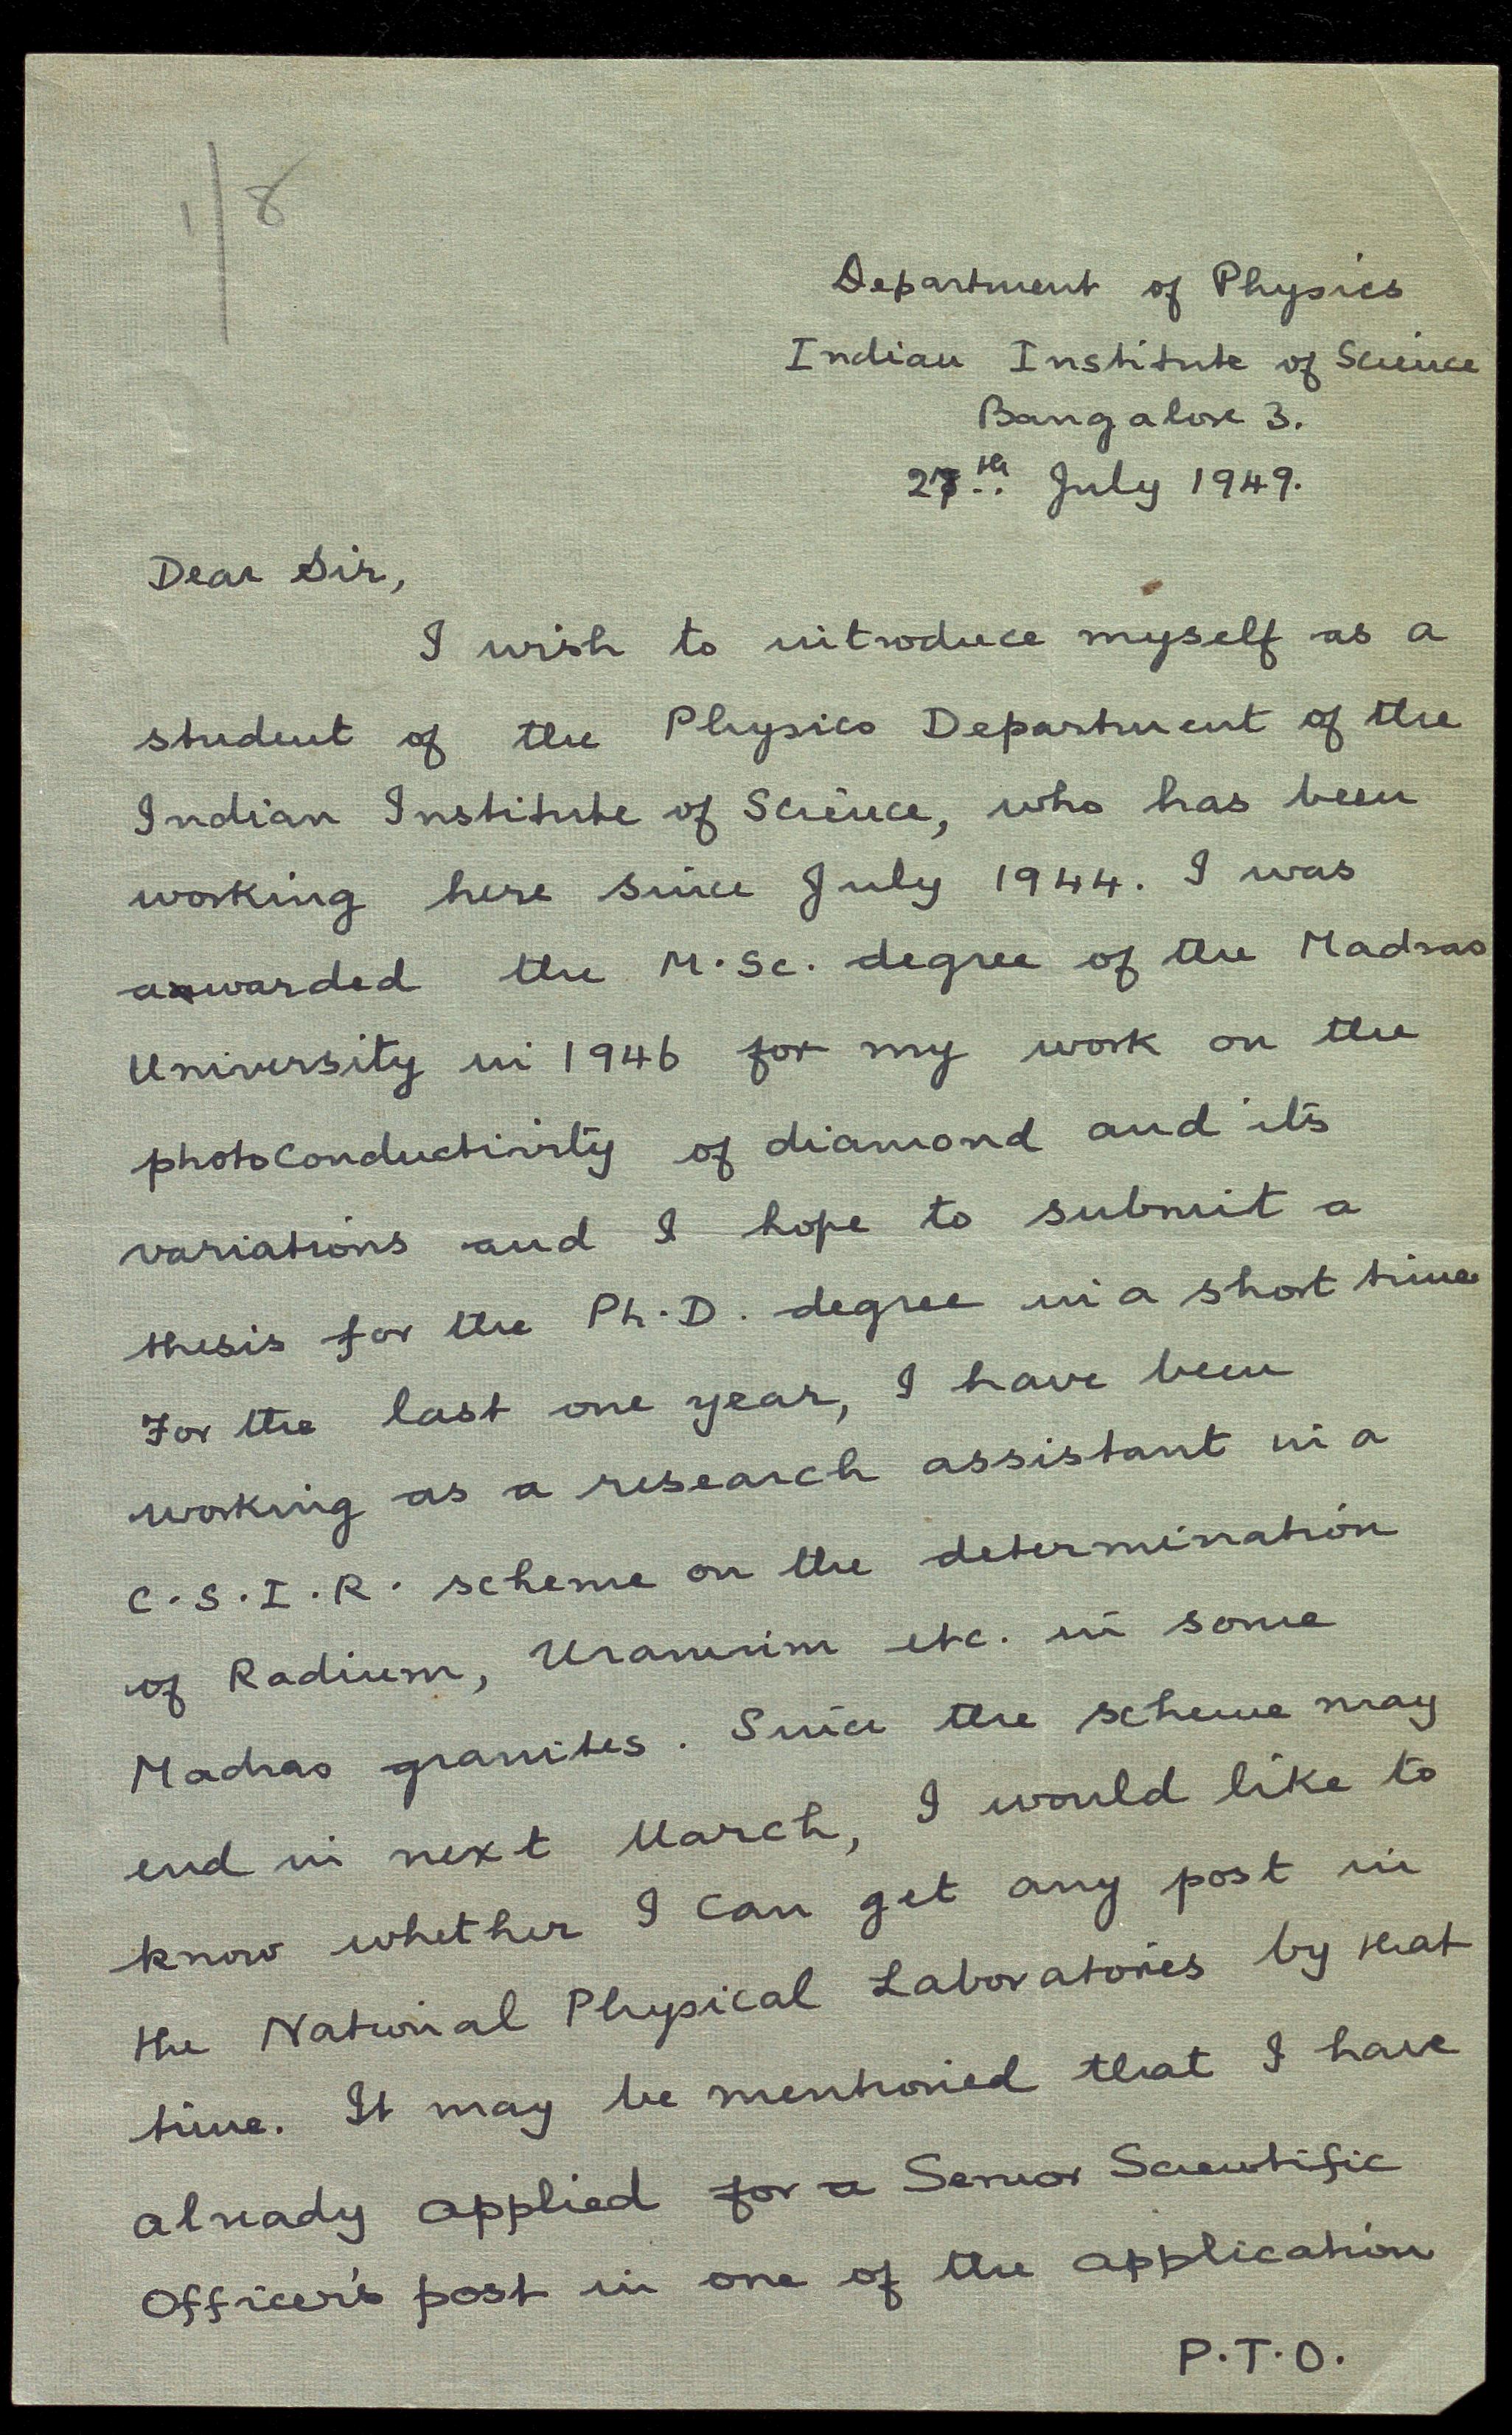 1/8
Department of Physics
Indian Institute of Science
Bangalore 3.
27th July 1949.
Dear Sir,
I wish to introduce myself as a
student of the Physics Department of the
Indian Institute of Science, who has been
working here since July 1944. I was
awarded the M.Sc. degree of the Madras
University in 1946 for my work on the
photoconductivity of diamond and its
variations and I hope to submit a
thesis for the Ph.D. degree in a short time
For the last one year, I have been
working as a research assistant in a
C.S.I.R. scheme on the determination
of Radium, Uranium etc. in some
Madras granites. Since the scheme may
end in next March, I would like to
know whether I can get any post in
the National Physical Laboratories by that
time. It may be mentioned that I have
already applied for a Senior Scientific
Officer's post in one of the application
P.T.O.